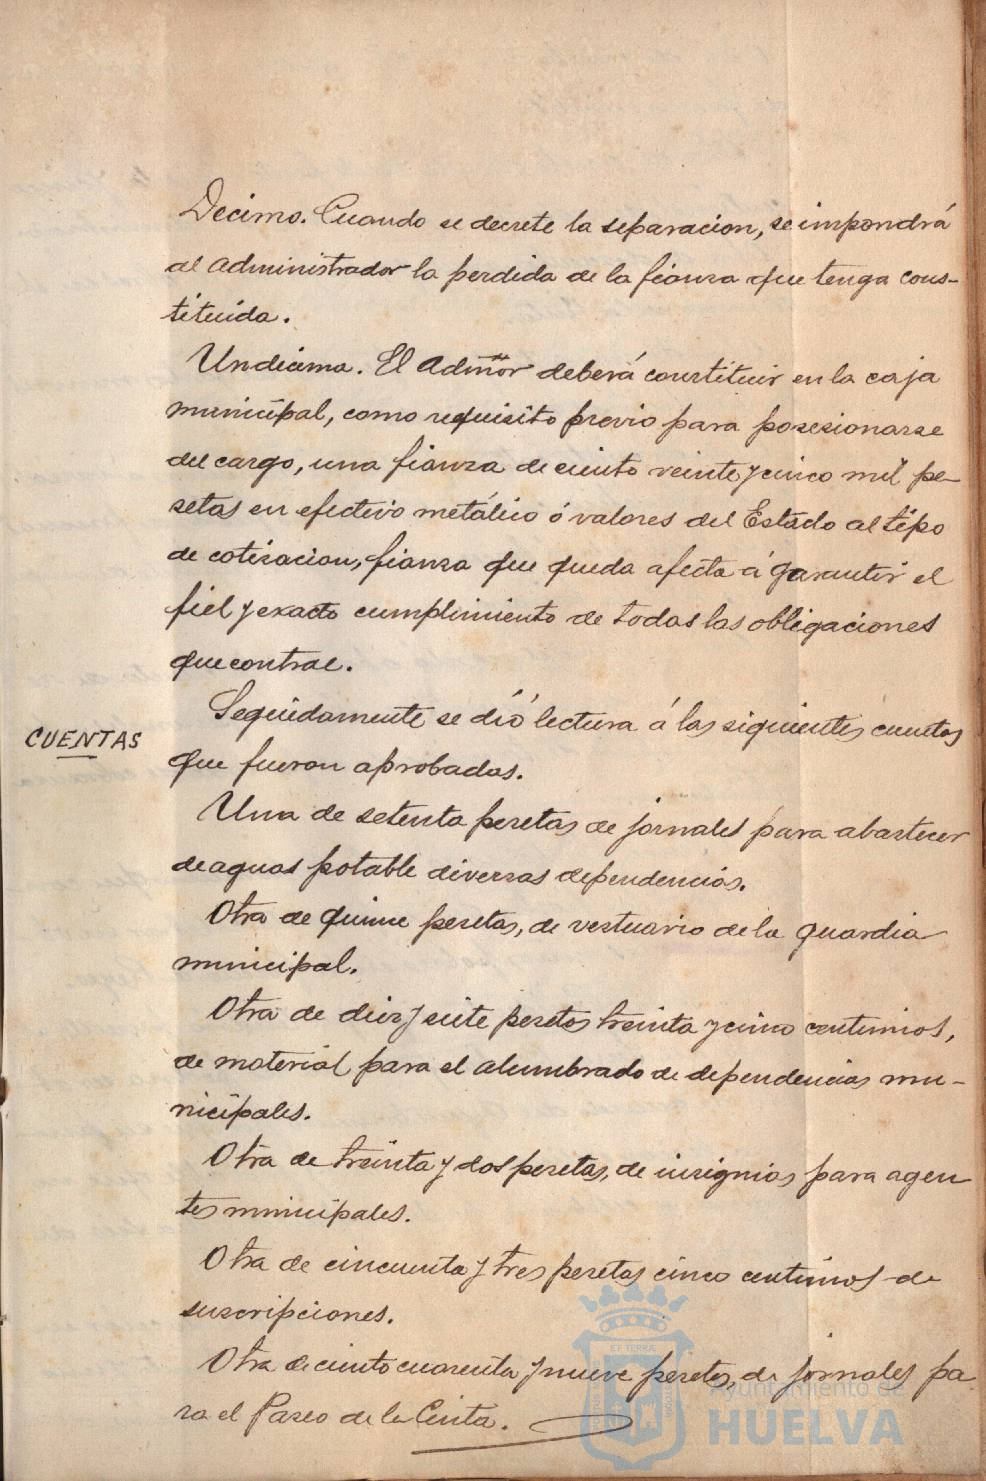 Decimo. Cuando se decrete la separacion, se impondrá
al administrador la perdida de la fianza que tenga cons-
tituida.
Undecima. El admor deberá constituir en la caja
municipal, como requisito previo para posesionarse
del cargo, una fianza de ciento veinte y cinco mil pe-
setas en efectivo metálico ó valores del Estado al tipo
de cotizacion, fianza que queda afecta á garantir el
fiel y exacto cumplimiento de todas las obligaciones
que contrae.
Seguidamente se dió lectura á las siguientes cuentas
CUENTAS
que fueron aprobadas.
Una de setenta pesetas de jornales para abastecer
de aguas potable diversas dependencias.
Otra de quince pesetas, de vestuario de la guardia
municipal.
Otra de diez y siete pesetas treinta y cinco centimos,
de material para el alumbrado de dependencias mu-
nicipales.
Otra de treinta y dos pesetas, de insignias para agen
tes municipales.
Otra de cincuenta y tres pesetas cinco centimos de
suscripciones.
Otra de ciento cuarenta y nueve pesetas, de jornales pa
ra el Paseo de la Cinta.
Ayuntamiento de
HUELVA